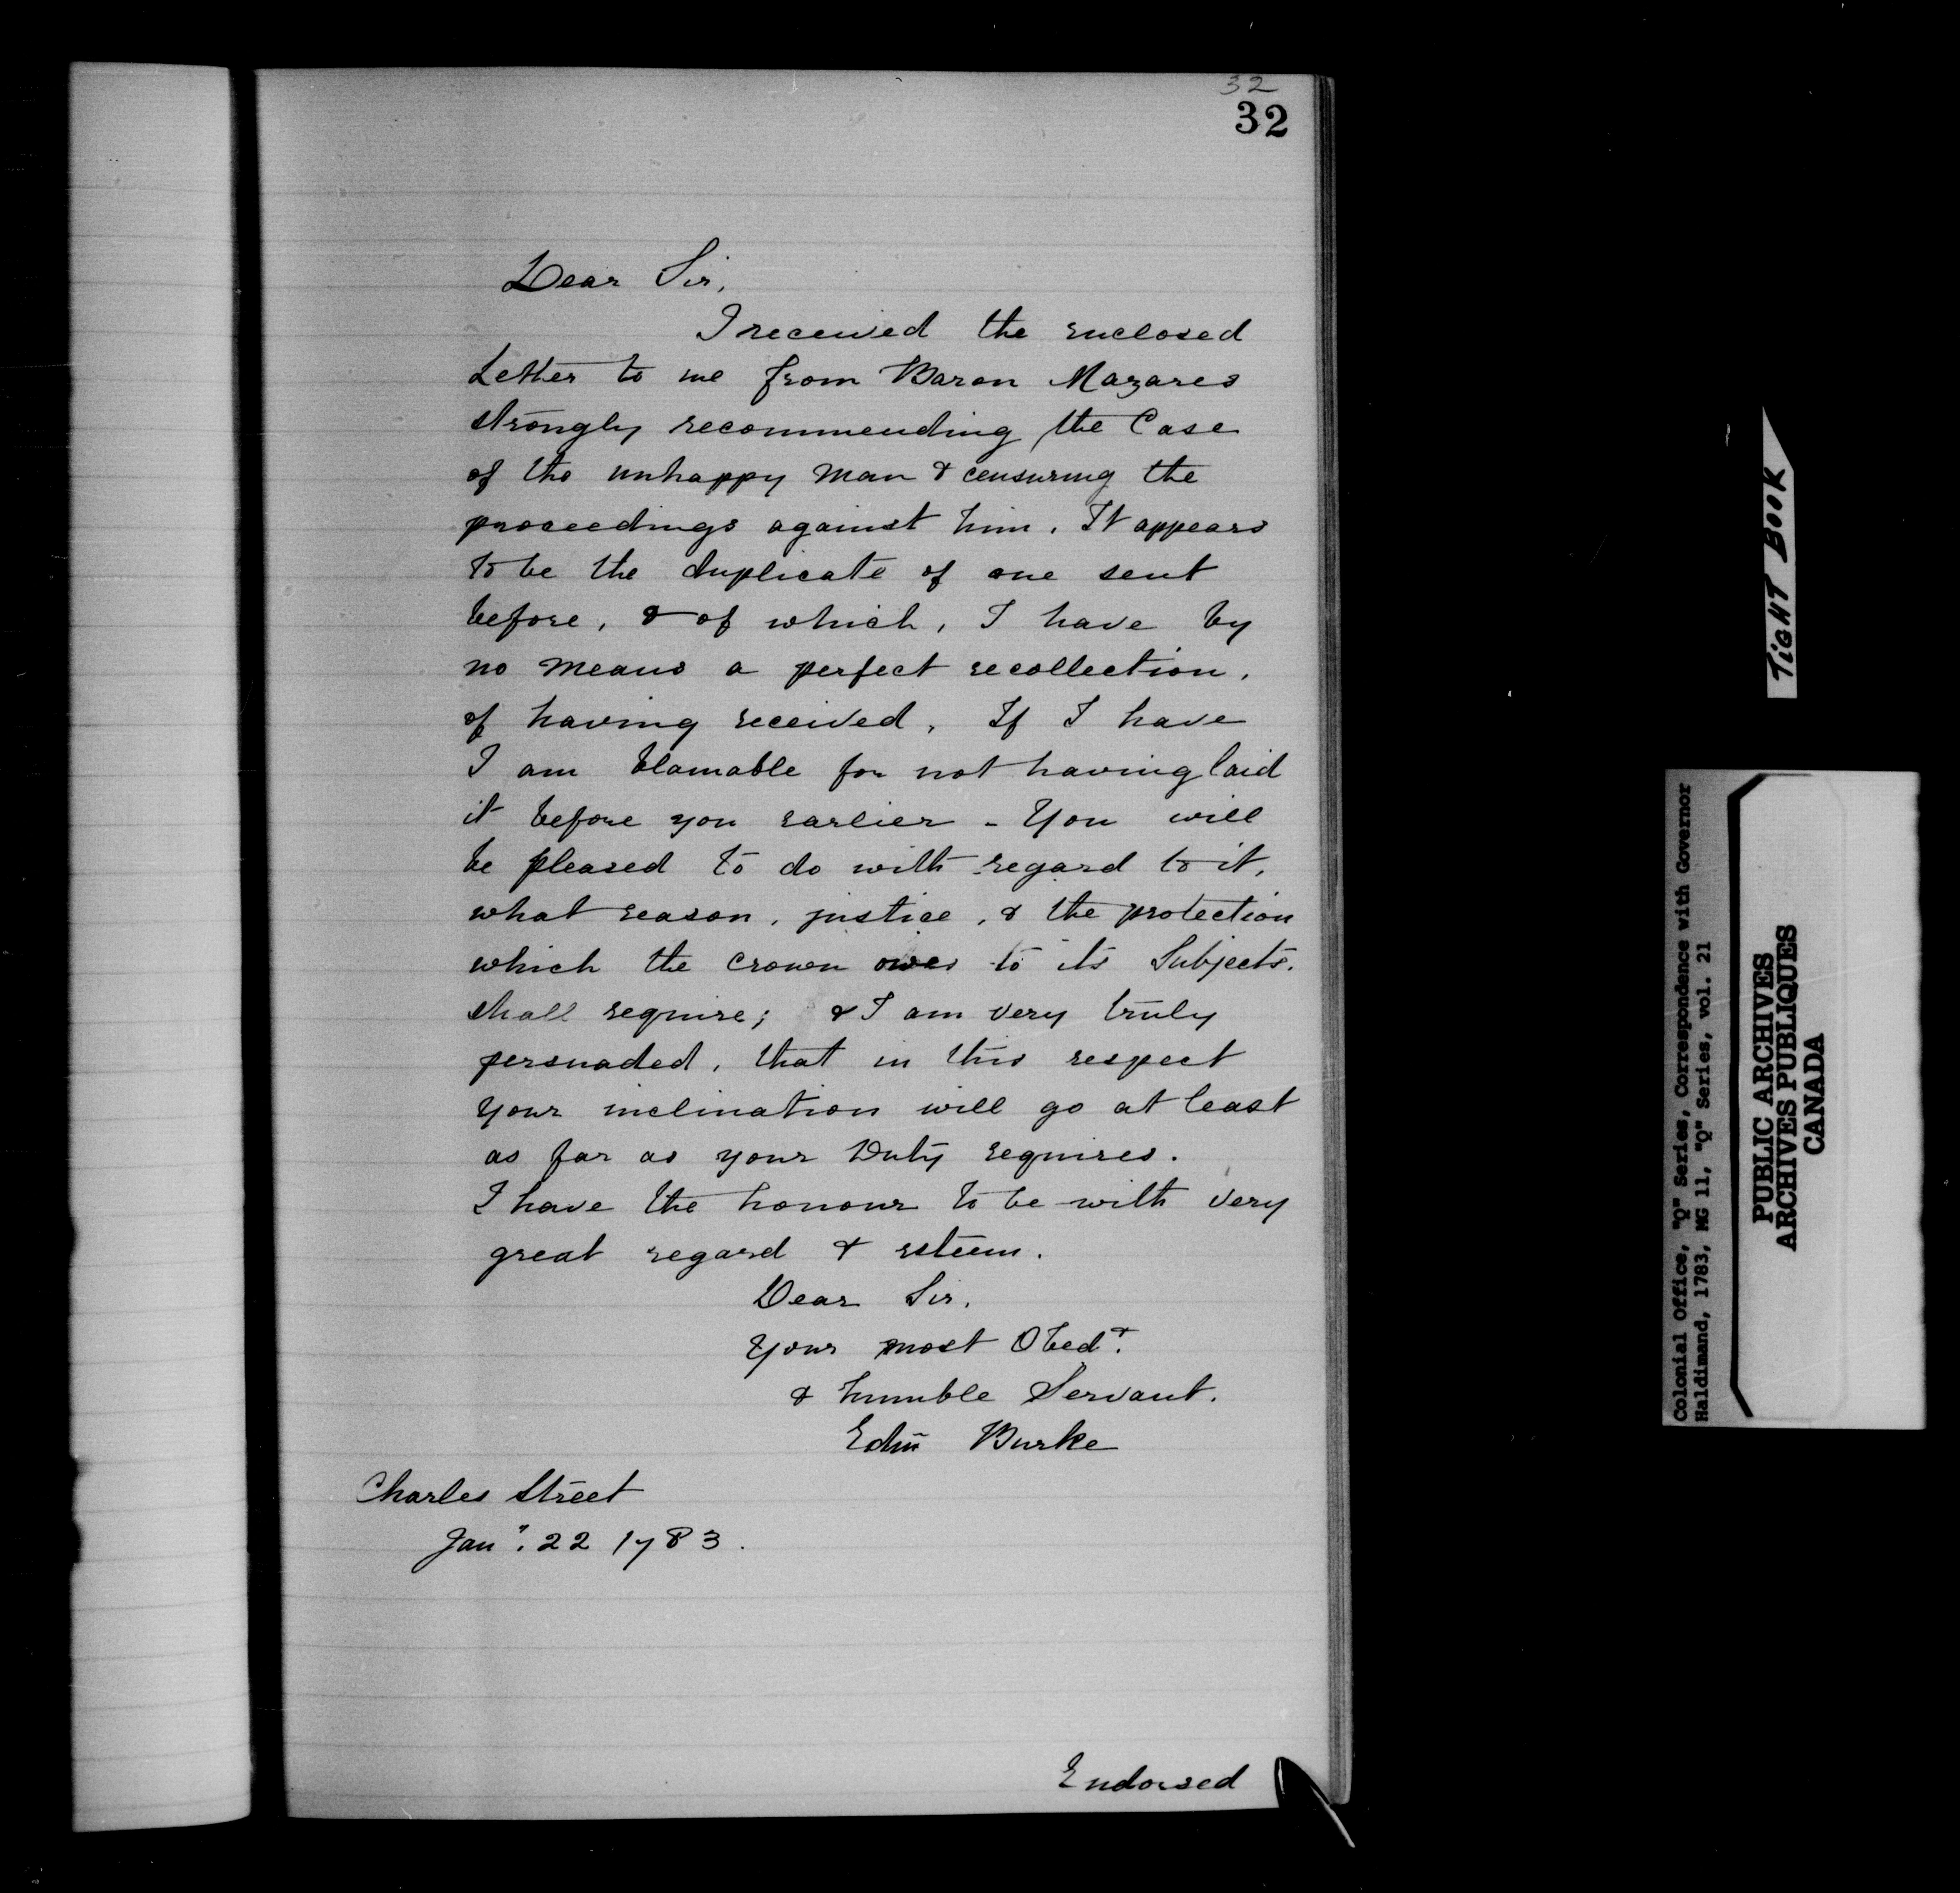 32
32
Dear Sir,
I received the enclosed
Letter to me from Baron Mazares
strongly recommending the Case
of the unhappy man & censuring the
proceedings against him. It appears
to be the duplicate of one sent
before, & of which, I have by
no means a perfect recollection,
of having received. If I have
I am blamable for not having laid
it before you earlier - You will
be pleased to do with regard to it,
what reason, justice, & the protection
which the crown owes to its Subjects.
shall require; & I am very truly
persuaded, that in this respect
your inclination will go at least
as far as your Duty requires.
I have the honour to be with very
great regard & esteem.
Dear Sir.
Your most Obedt.
& humble Servant.
Edm̃ Burke
Charles Street
Jany. 22 1783.
Endorsed
TIGHT BOOK
Colonial Office, "Q" Series, Correspondence with Governor
Haldimand, 1783, MG 11, "Q" Series, vol. 21
PUBLIC ARCHIVES
ARCHIVES PUBLIQUES
CANADA